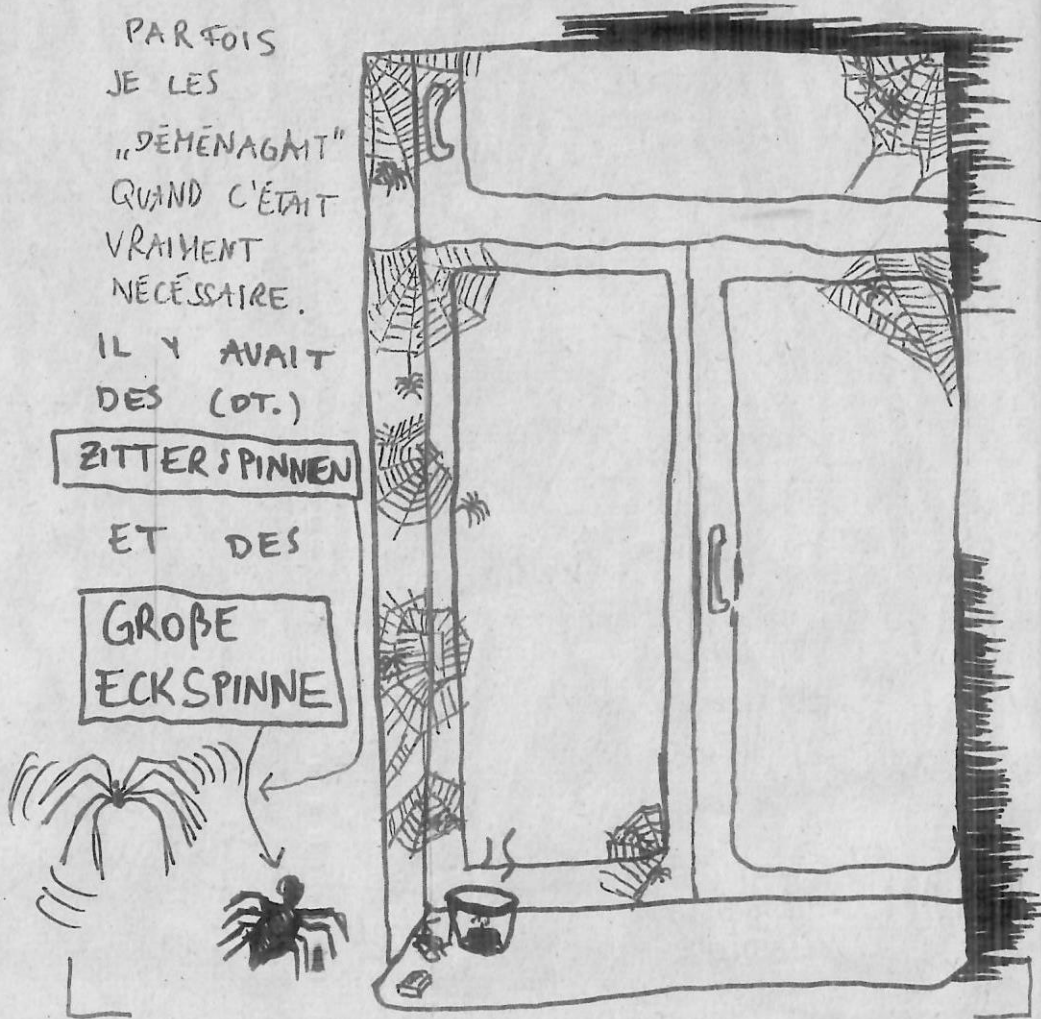 PARFOIS
JE LES
„DÉMÉNAGAIT"
QUAND C'ÉTAIT
VRAIMENT
NÉCÉSSAIRE.
IL Y AVAIT
DES (DT.)
ZITTERSPINNEN
ET DES
GROßE
ECKSPINNE